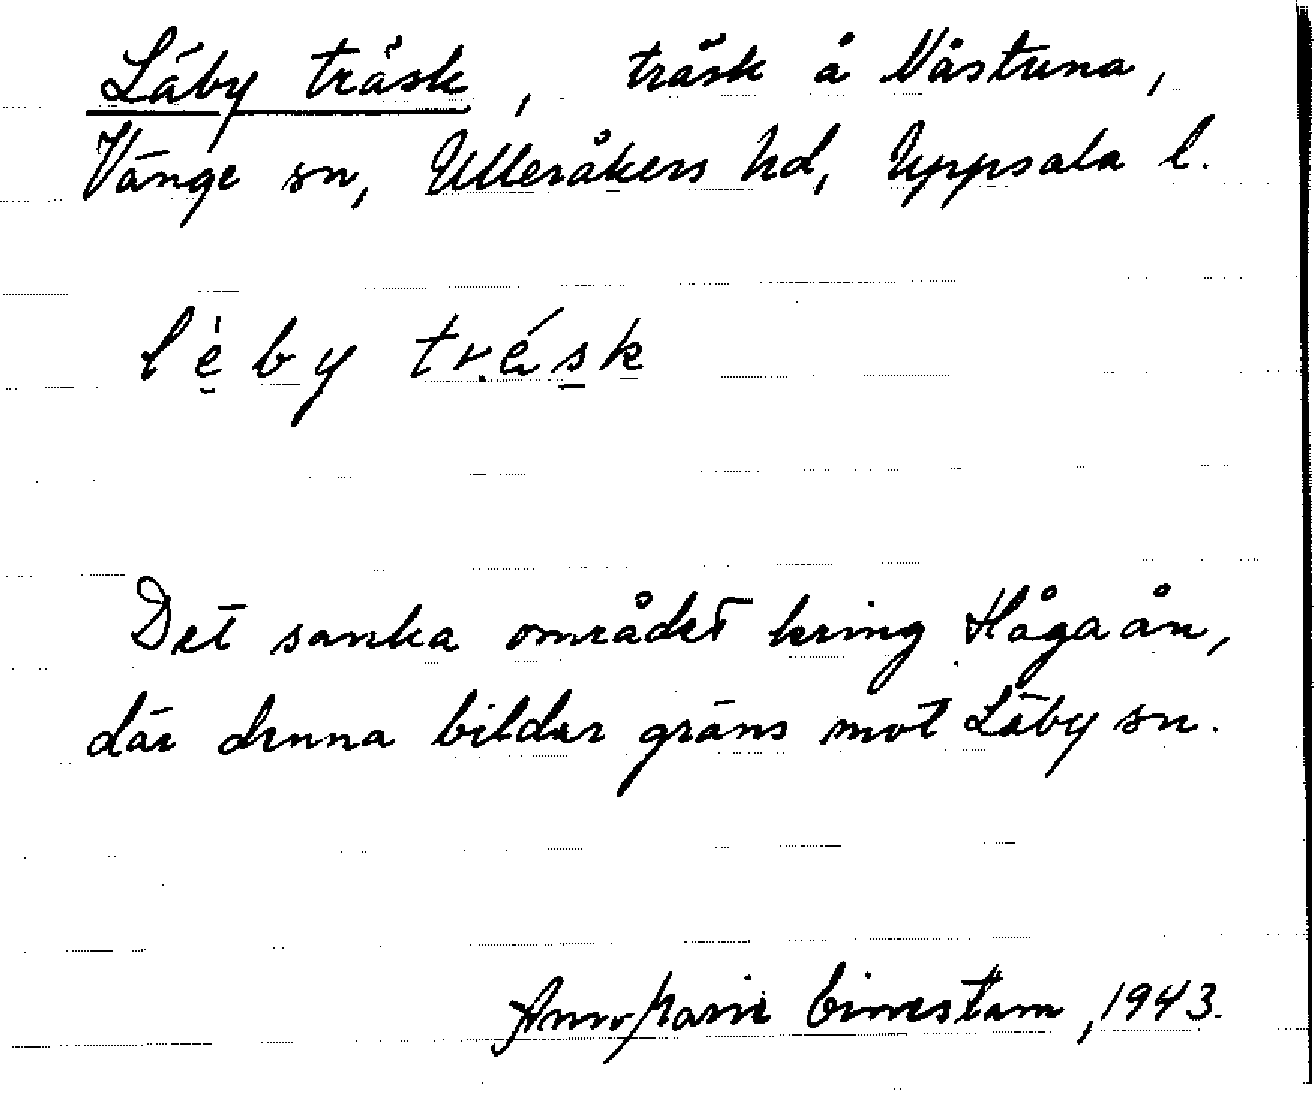 Läby träsk, träsk å Nåstuna,
Vänge sn, Ulleråkers hd, Uppsala l.
lèby trésk
Det sanka området kring Hågaån,
där denna bildar gräns mot Läby sn.
1943.